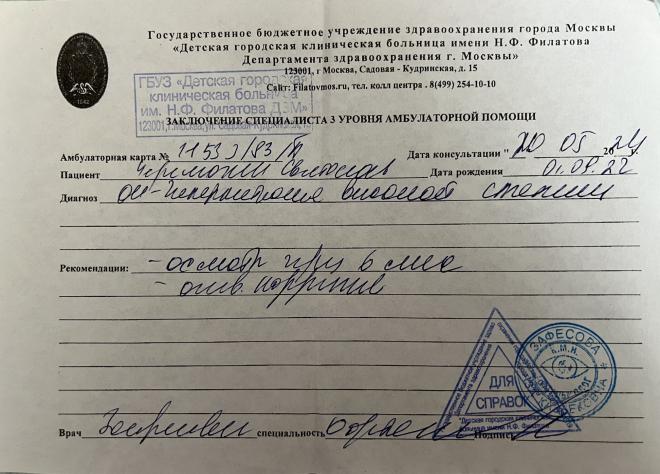 Государственное бюджетное учреждение здравоохранения города Москвы
«Детская городская клиническая больница имени Н.Ф. Филатова
Департамента здравоохранения г. Москвы»
123001, г Москва, Садовая - Кудринская, д. 15
Сайт: Filatovmos.ru, тел. колл центра . 8(499) 254-10-10
ГБУЗ «Детская городская
клиническая больница
им. Н.Ф. Филатова ДЗМ»
123001, г.Москва, ул. Садовая-Кудринская, 15
1842
ЗАКЛЮЧЕНИЕ СПЕЦИАЛИСТА 3 УРОВНЯ АМБУЛАТОРНОЙ ПОМОЩИ
Амбулаторная карта № Дата консультации " 20 05 2024 г.
Пациент Дата рождения 01.09.22
Диагноз OU-гиперметропия высокой степени
Рекомендации: - осмотр через 6 мес
-
ДЛЯ
СПРАВОК
ЗАФЕСОВА
К.М.Н.
Врач специальность Подпись